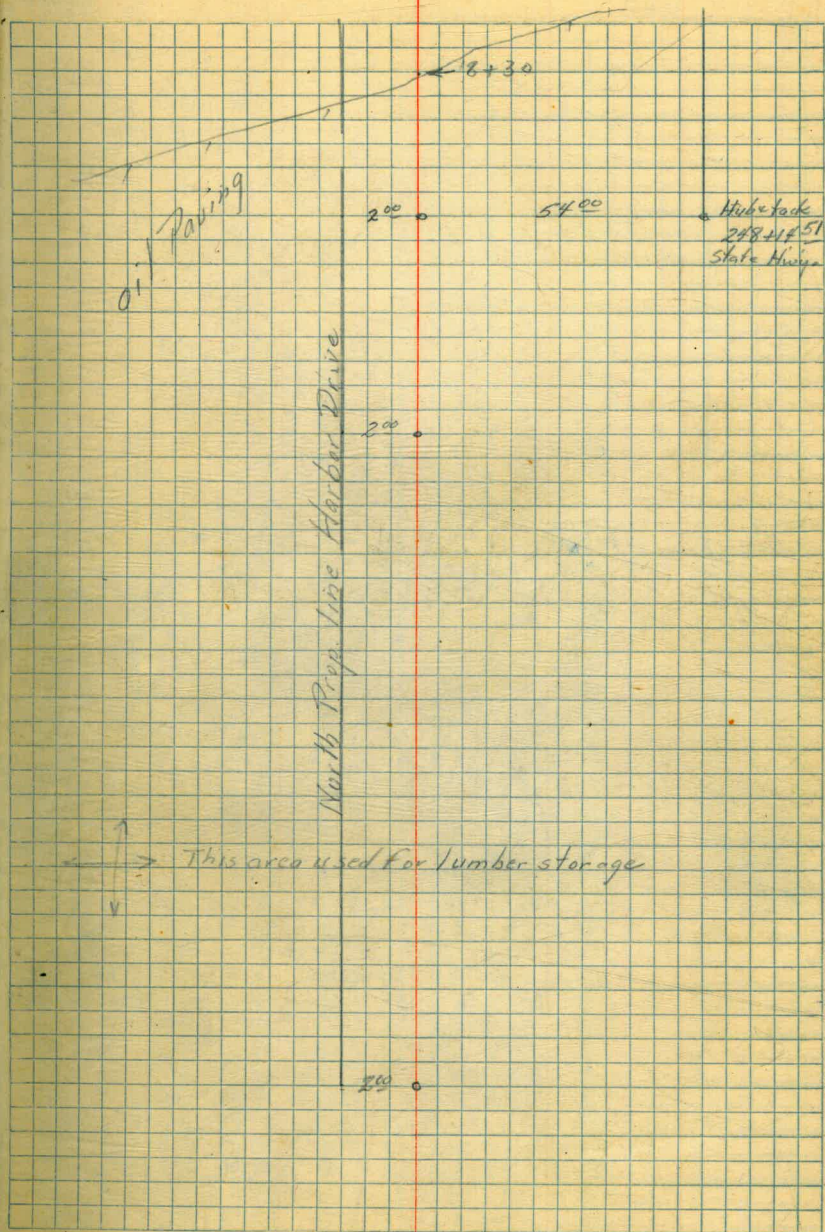 8+30
oil Paving
2 00
54 00
Hub & tack
248+14 51
State Hwy.
North Prop. line Harbor Drive
2 00
This area used for lumber storage
2 00